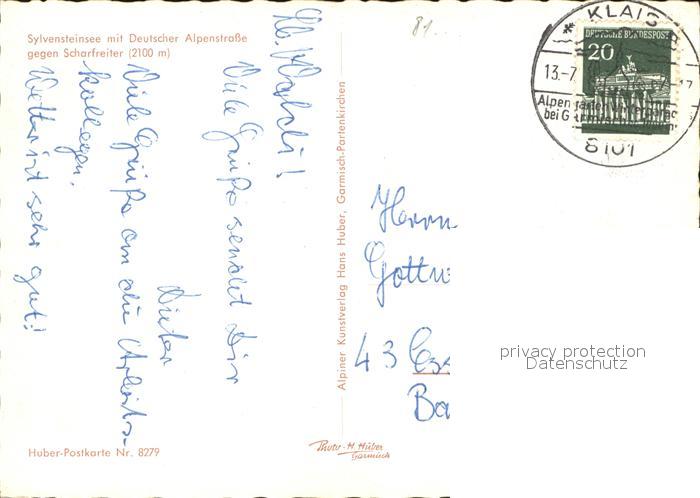 Sylvensteinsee mit Deutscher Alpenstraße
gegen Scharfreiter (2100 m)
81.
Viele Grüße sendet Dir
Dieter
Viele Grüße an die Arbeits-
kollegen.
Wetter ist sehr gut!
Huber-Postkarte Nr. 8279
Alpiner Kunstverlag Hans Huber, Garmisch-Partenkirchen
Photo-H. Huber
Garmisch
KLAIS
DEUTSCHE BUNDESPOST
20
13.-7
17
bei
8101
Herrn
43
privacy protection
Datenschutz